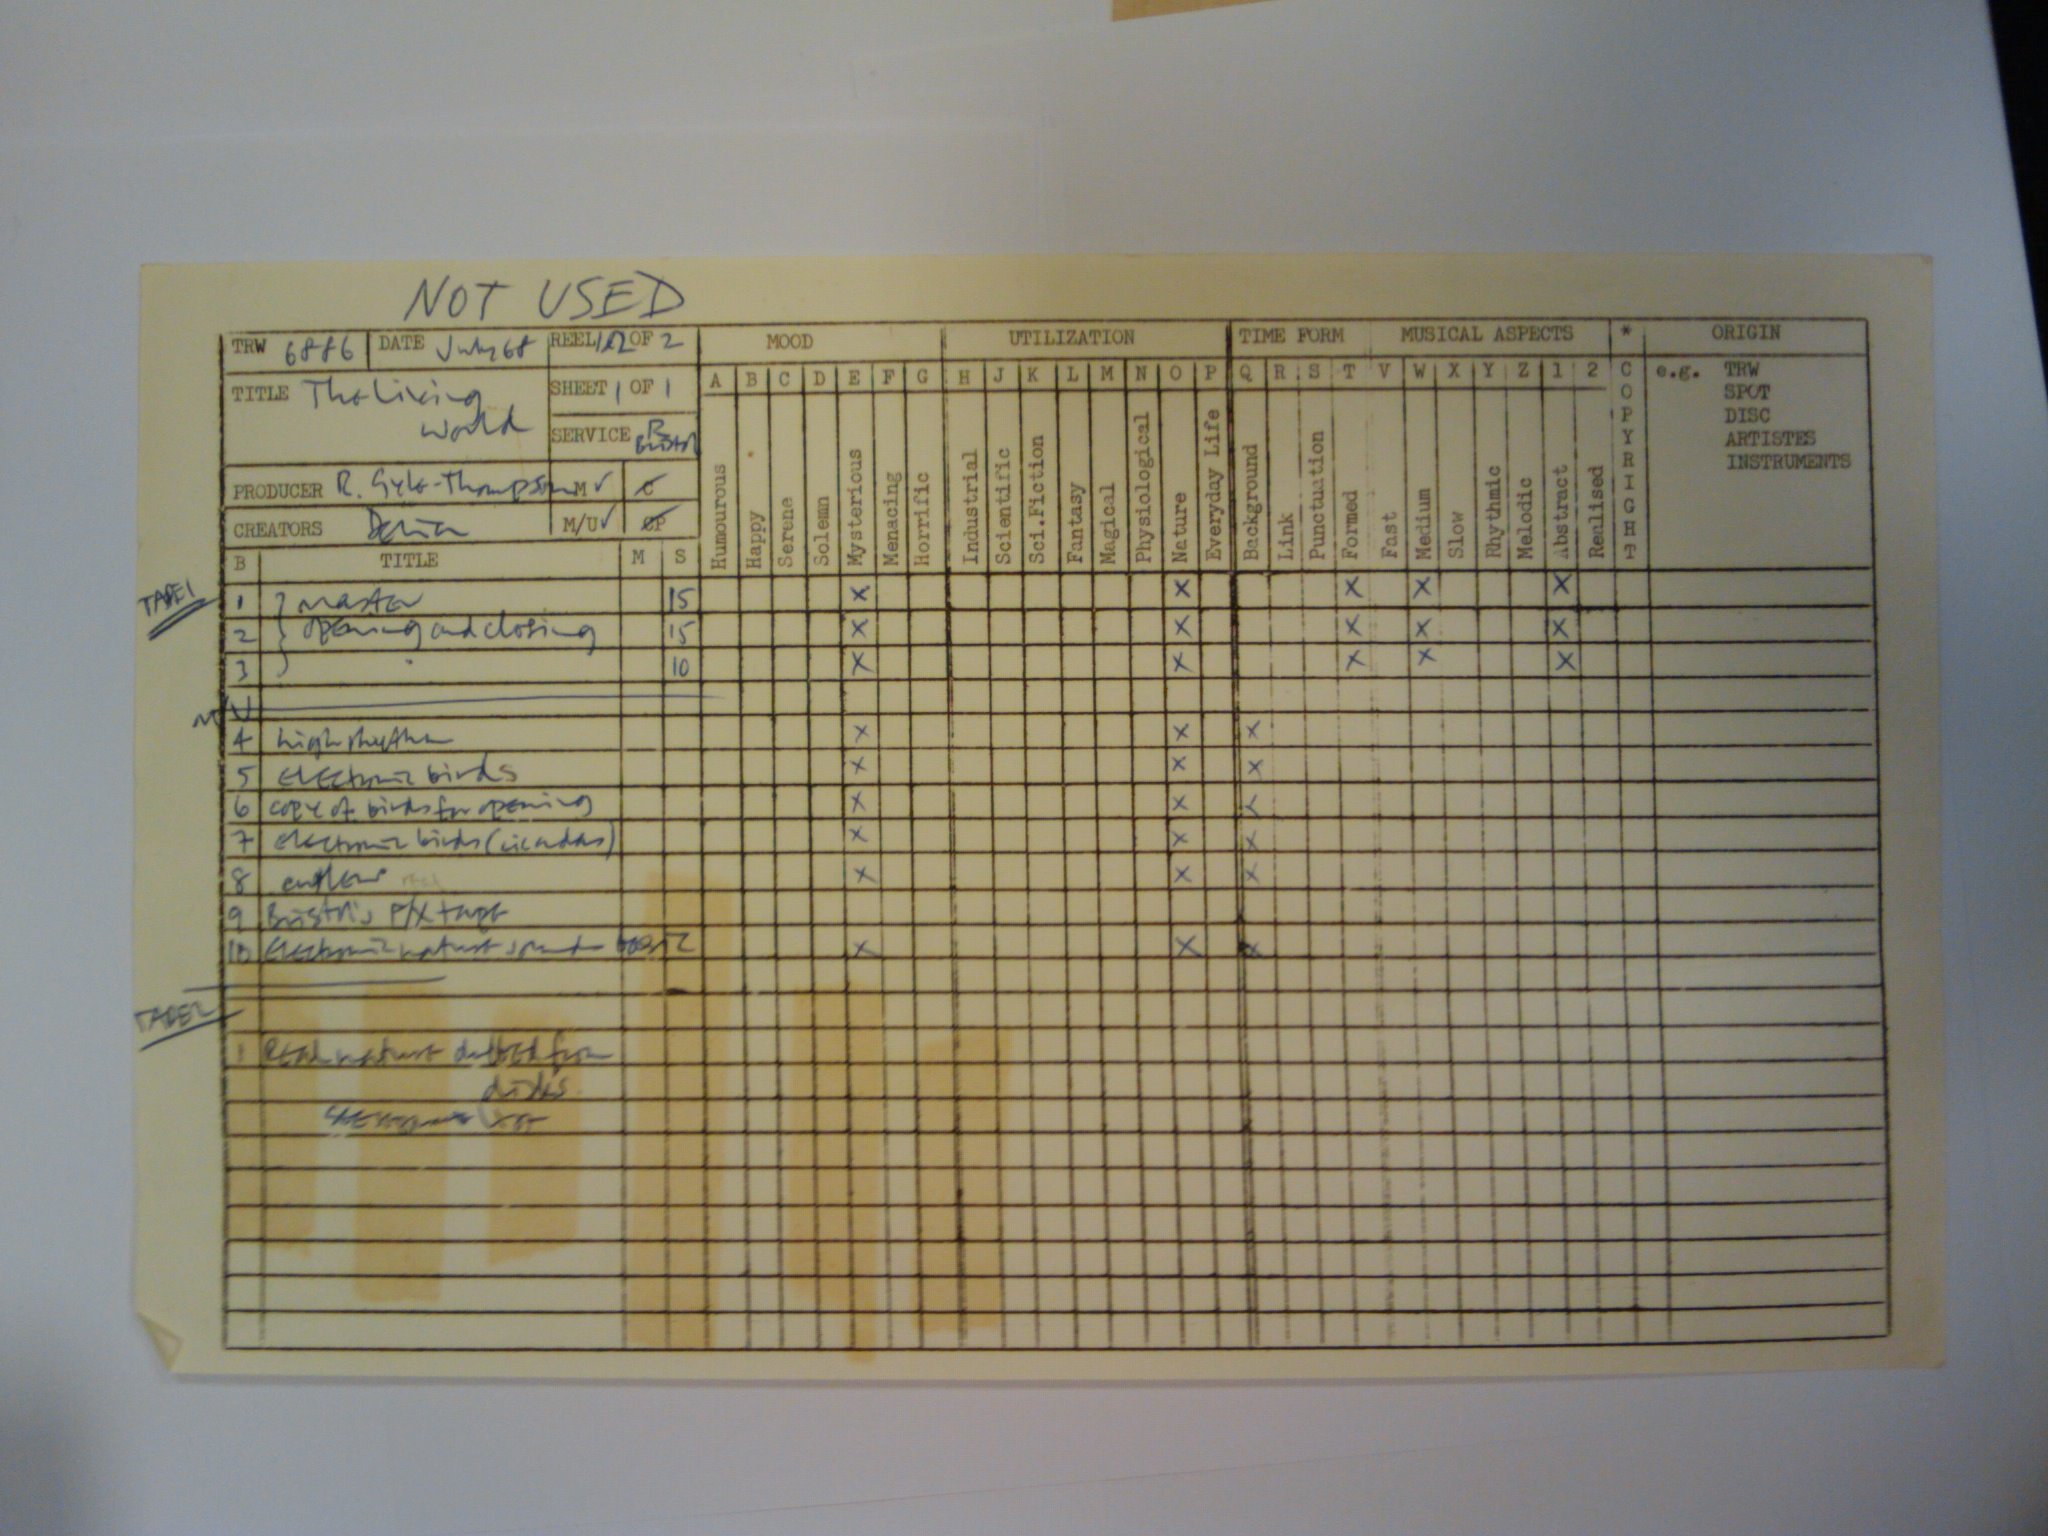 NOT USED
TRW 6886 DATE July 68 REEL 1/2 OF 2
MOOD UTILIZATION TIME FORM MUSICAL ASPECTS * ORIGIN
TITLE The Living World
SHEET 1 OF 1
SERVICE R Bristol
A B C D E F G H J K L M N O P Q R S T V W X Y Z 1 2
COPYRIGHT
e.g. TRW
SPOT
DISC
ARTISTES
INSTRUMENTS
Humourous Happy Serene Solemn Mysterious Menacing Horrific Industrial Scientific Sci.Fiction Fantasy Magical Physiological Nature Everyday Life Background Link Punctuation Formed Fast Medium Slow Rhythmic Melodic Abstract Realised
PRODUCER R. Gyle-Thompson M ✓ C
CREATORS Delia M/U ✓ CP
B TITLE M S
TAPE 1
1 } master 15 X X X X X
2 } opening and closing 15 X X X X X
3 } 10 X X X X X
M/U
4 high rhythm X X X
5 electronic birds X X X
6 copy of birds for opening X X X
7 electronic birds (cicadas) X X X
8 X X X
9 Bristol's F/X tape
10 Electronic nature sounds X X X
TAPE 2
1 Real nature dubbed from
discs